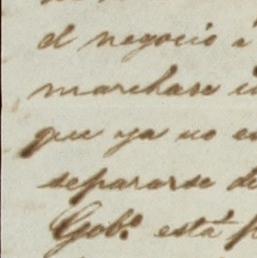 el negocio é
marchase
que ya no
separarse de
Gob.º está